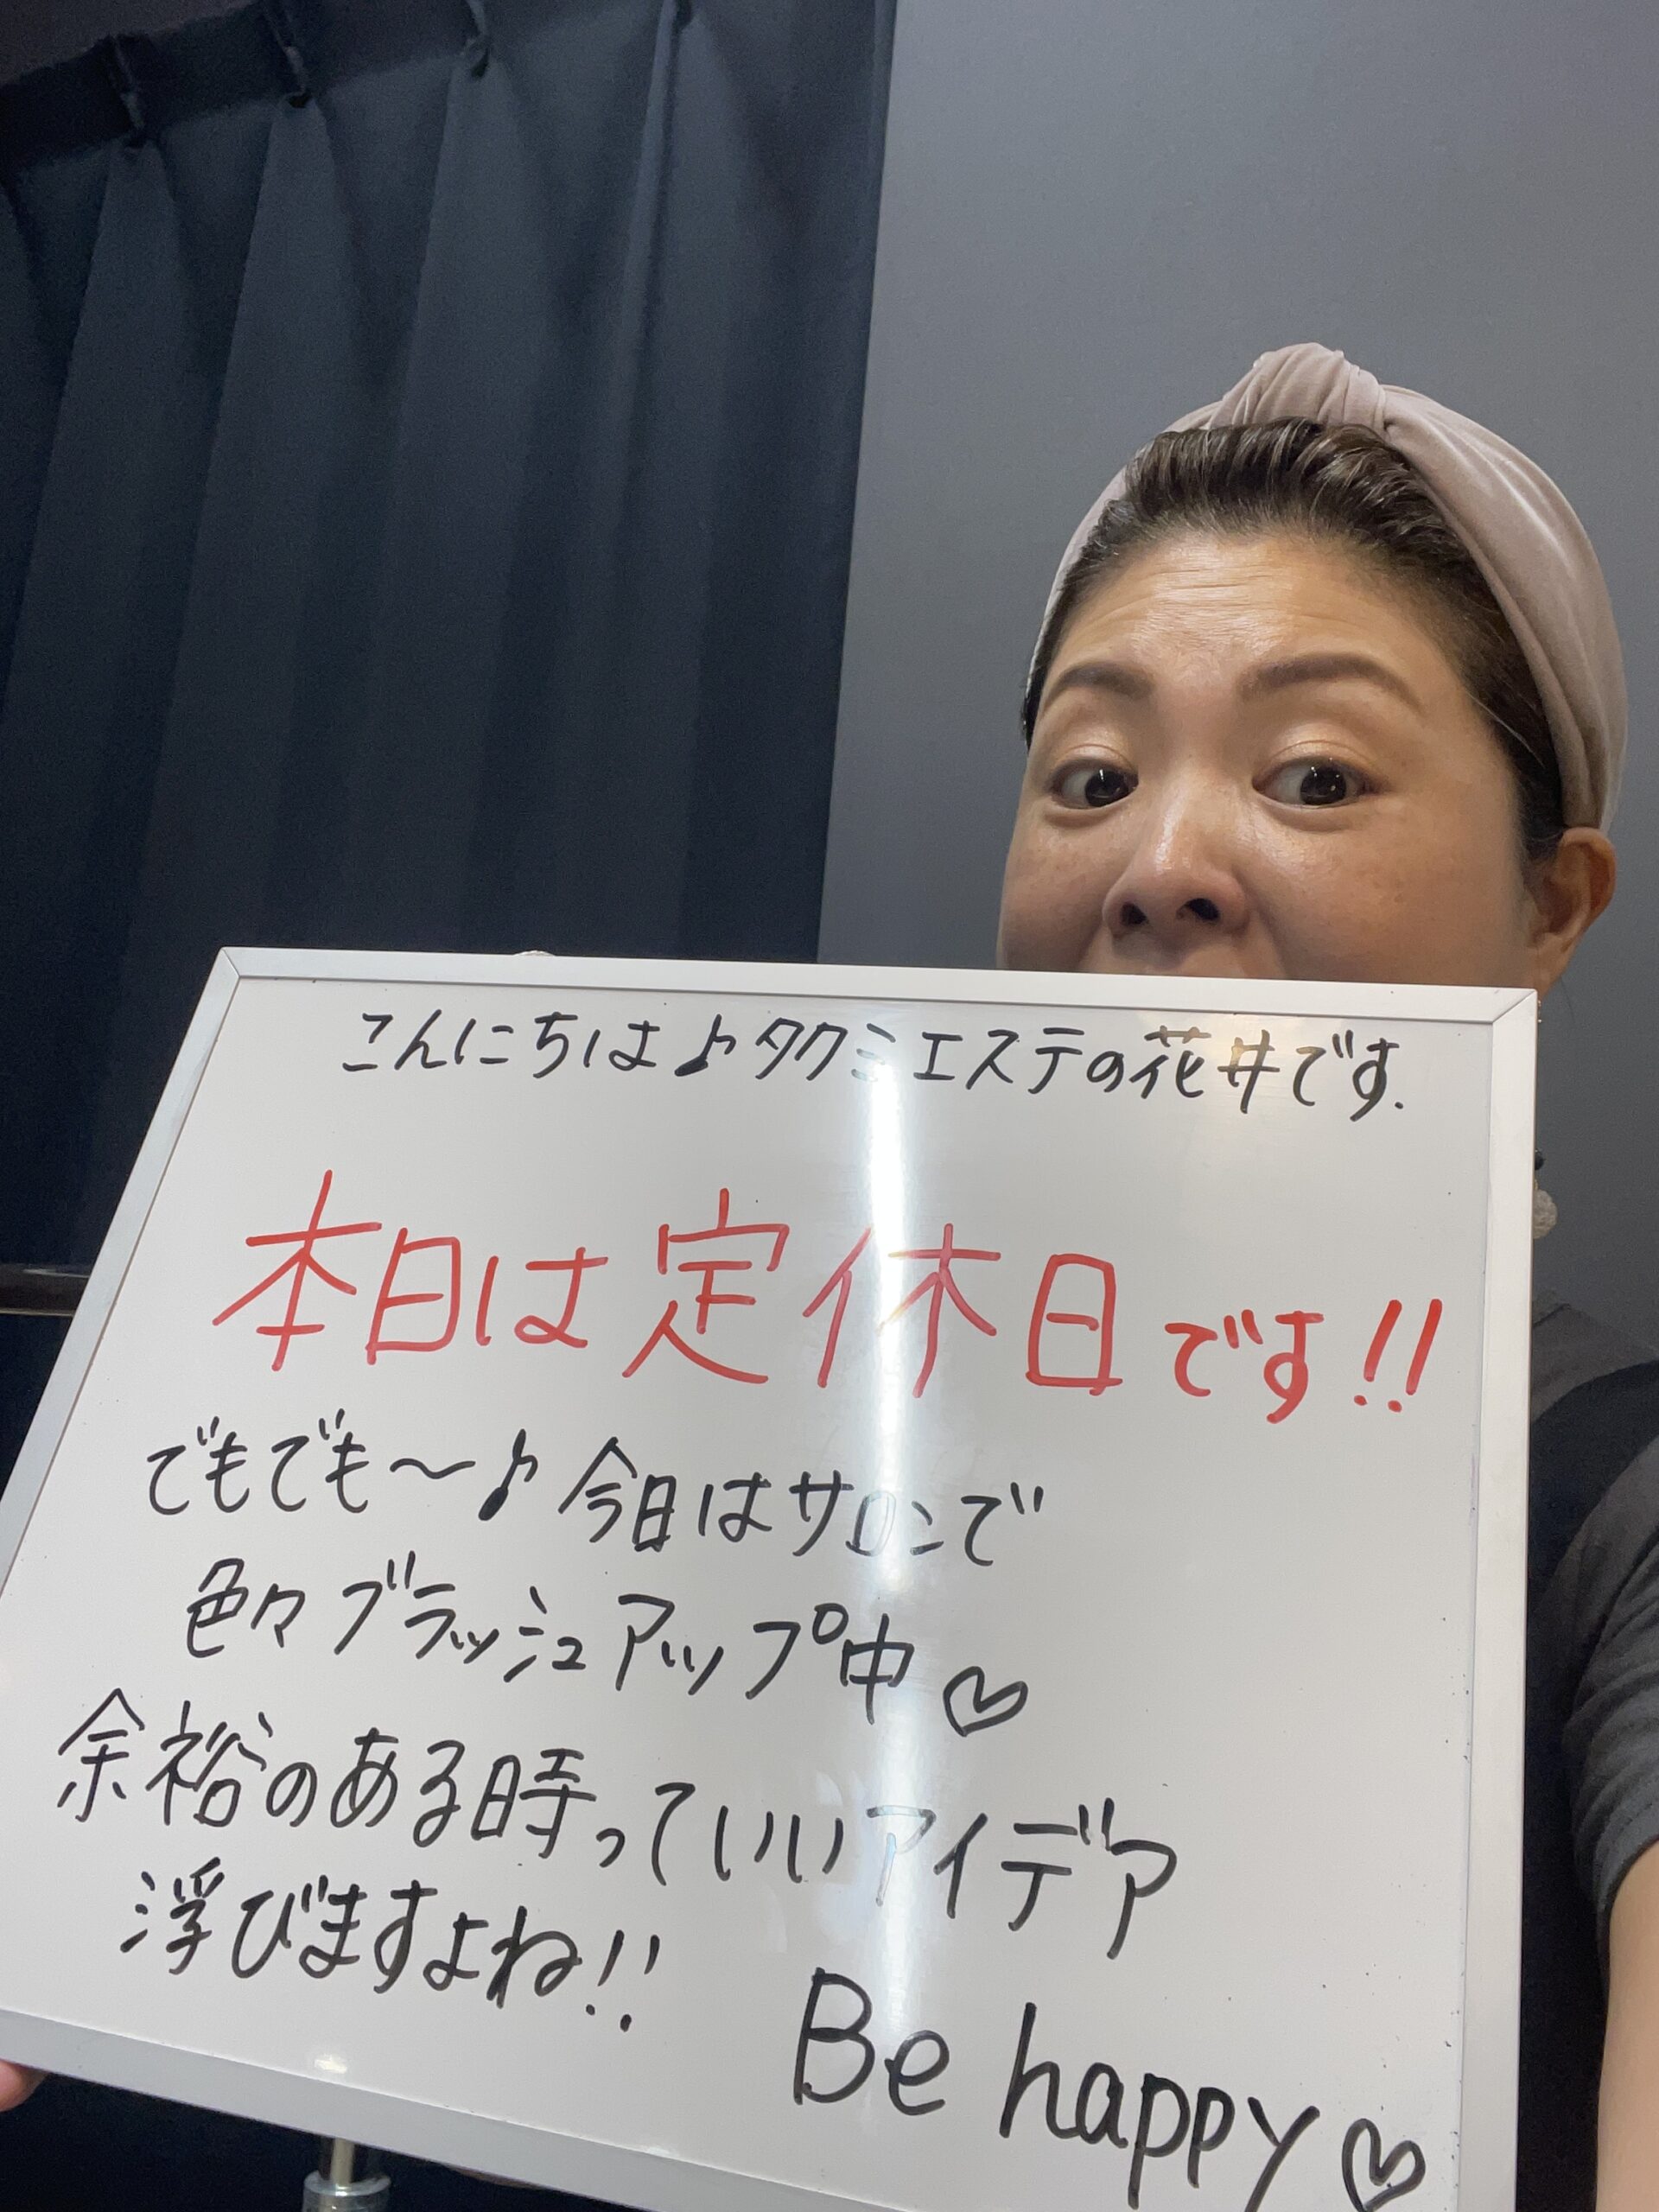 こんにちは♪タクミエステの花井です.
本日は定休日です!!
でもでも〜♪今日はサロンで
色々ブラッシュアップ中♡
余裕のある時っていいアイデア
浮びますよね!!
Be happy♡